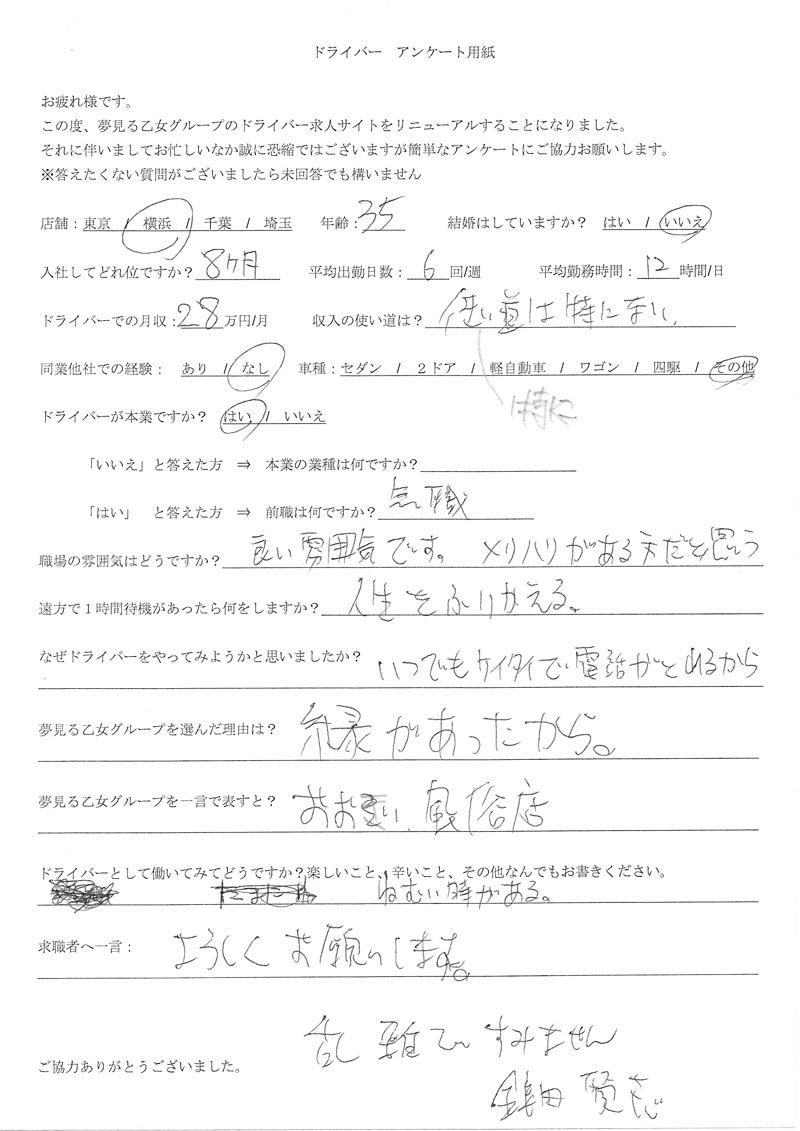 ドライバー　アンケート用紙
お疲れ様です。
この度、夢見る乙女グループのドライバー求人サイトをリニューアルすることになりました。
それに伴いましてお忙しいなか誠に恐縮ではございますが簡単なアンケートにご協力お願いします。
※答えたくない質問がございましたら未回答でも構いません
店舗：東京 / 横浜 / 千葉 / 埼玉　年齢：35　結婚はしていますか？　はい / いいえ
入社してどれ位ですか？ 8ヶ月　平均出勤日数： 6 回/週　平均勤務時間： 12 時間/日
ドライバーでの月収：28万円/月　収入の使い道は？ 使い道は特にない。
同業他社での経験：　あり / なし　車種：セダン / 2ドア / 軽自動車 / ワゴン / 四駆 / その他
特に
ドライバーが本業ですか？　はい / いいえ
「いいえ」と答えた方　⇒　本業の業種は何ですか？
「はい」　と答えた方　⇒　前職は何ですか？ 無職
職場の雰囲気はどうですか？ 良い雰囲気です。 メリハリがある方だと思う
遠方で1時間待機があったら何をしますか？ 人生をふりかえる。
なぜドライバーをやってみようかと思いましたか？ いつでもケイタイで電話がとれるから
夢見る乙女グループを選んだ理由は？ 縁があったから。
夢見る乙女グループを一言で表すと？ 風俗店
ドライバーとして働いてみてどうですか？楽しいこと、辛いこと、その他なんでもお書きください。
ねむい時がある。
求職者へ一言： よろしくお願いします。
乱雑ですみません
ご協力ありがとうございました。